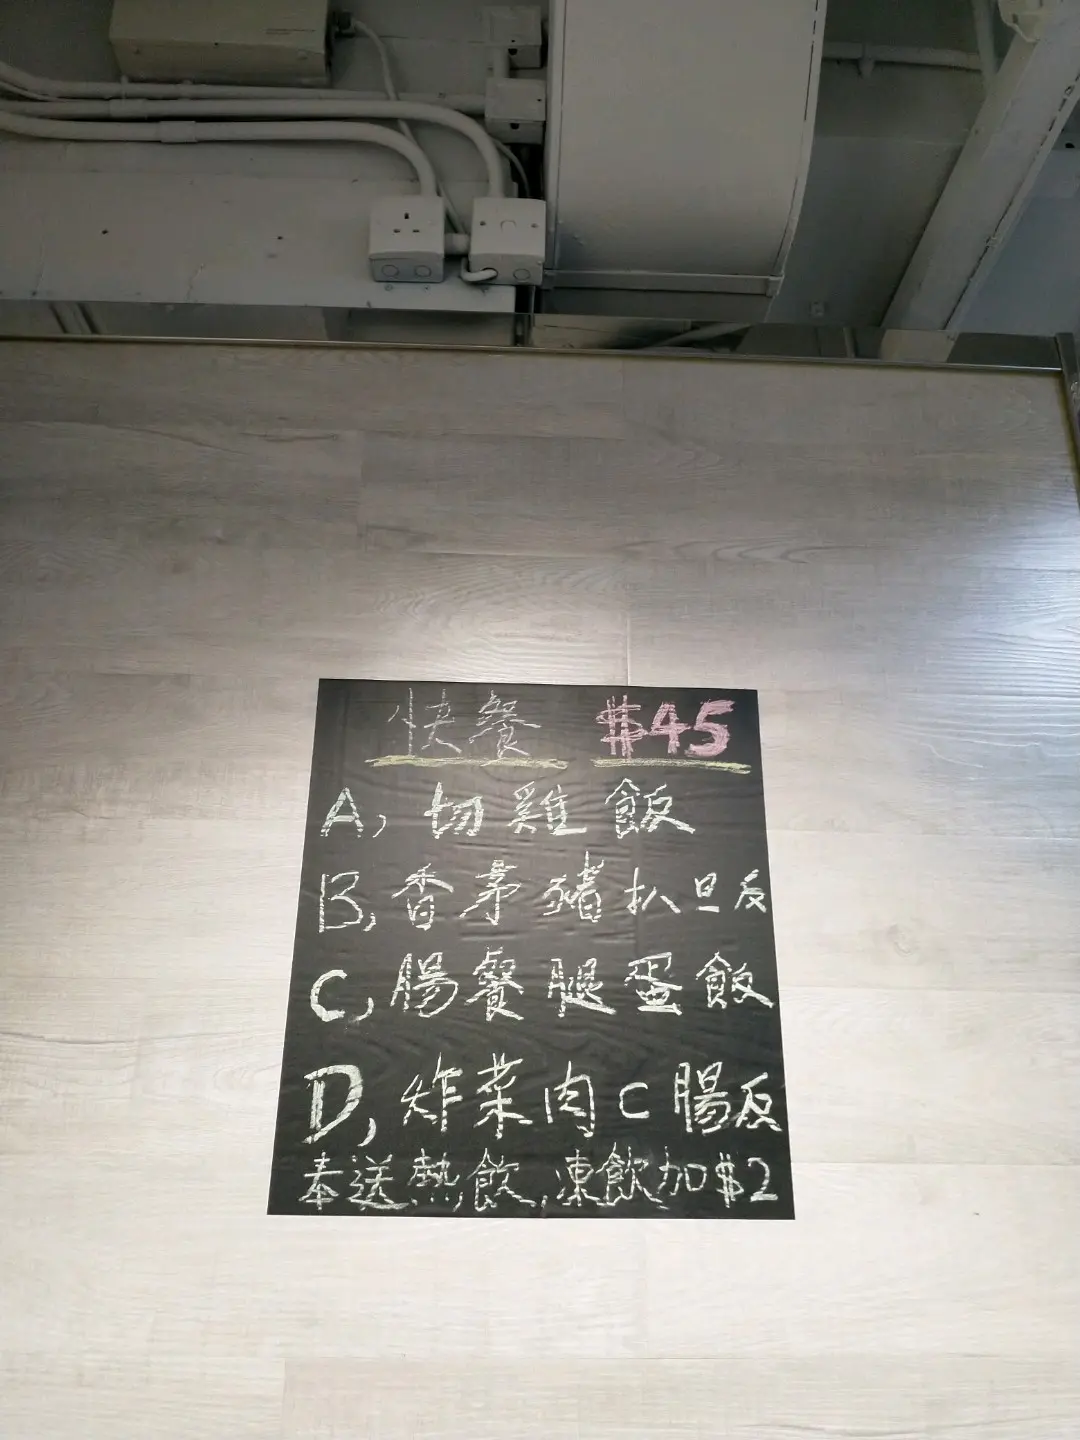 快餐 $45
A, 切雞飯
B, 香茅豬扒旦反
C, 腸餐腿蛋飯
D, 炸菜肉C腸反
奉送熱飲,凍飲加$2